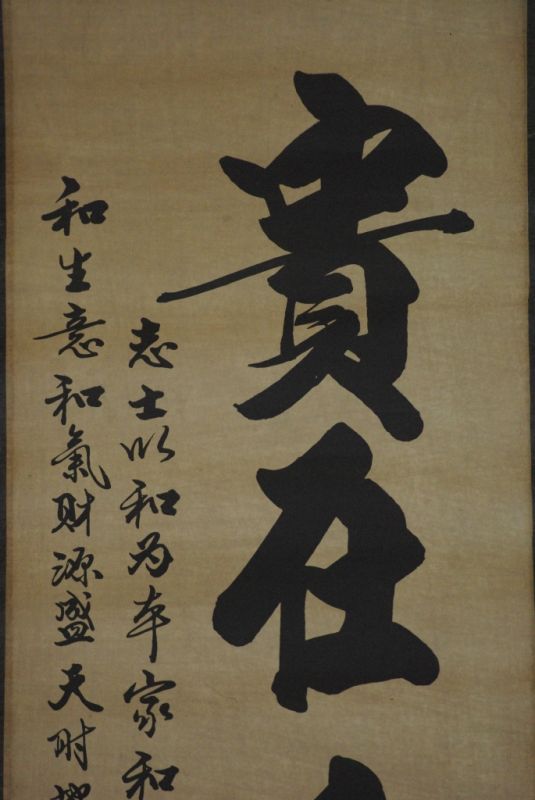 貴在
志士以和为本家和
和生意和氣财源盛天时